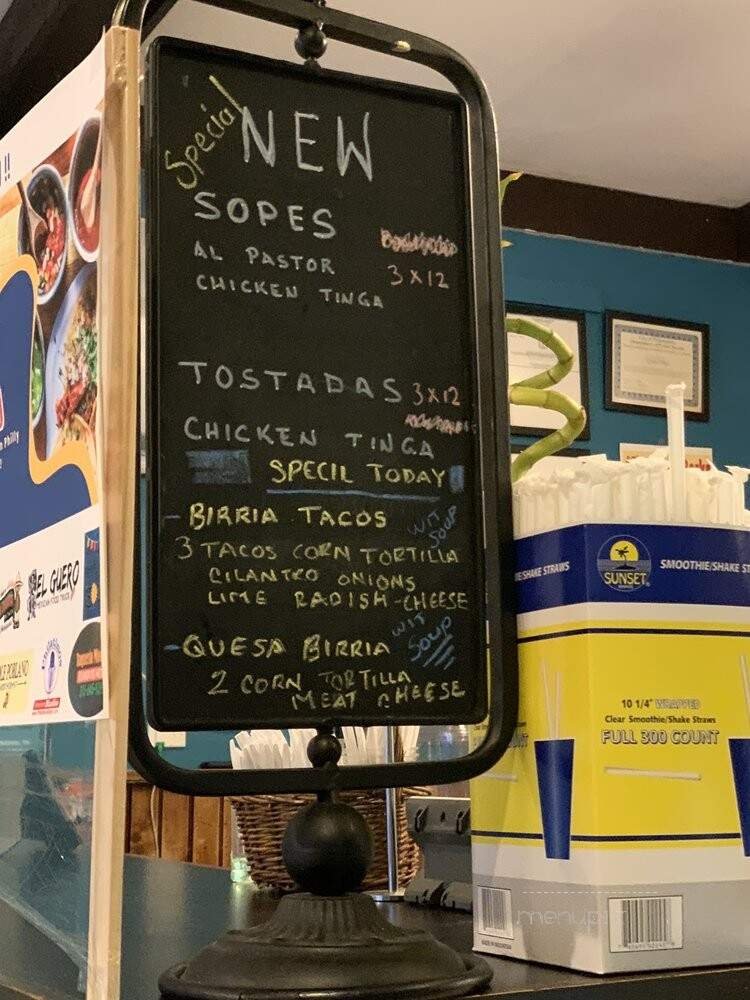 !!
Special
NEW
SOPES
AL PASTOR
3 x 12
CHICKEN TINGA
TOSTADAS 3 x 12
CHICKEN TINGA
SPECIL TODAY
- BIRRIA TACOS
WIT SOUP
3 TACOS CORN TORTILLA
CILANTRO ONIONS
LIME RADISH-CHEESE
- QUESA BIRRIA
WIT SOUP
2 CORN TORTILLA
MEAT CHEESE
Philly
EL GUERO
MEXICAN FOOD TRUCK
POBLANO
E/SHAKE STRAWS
SUNSET
SMOOTHIE/SHAKE ST
10 1/4" WRAPPED
Clear Smoothie/Shake Straws
FULL 300 COUNT
menupix